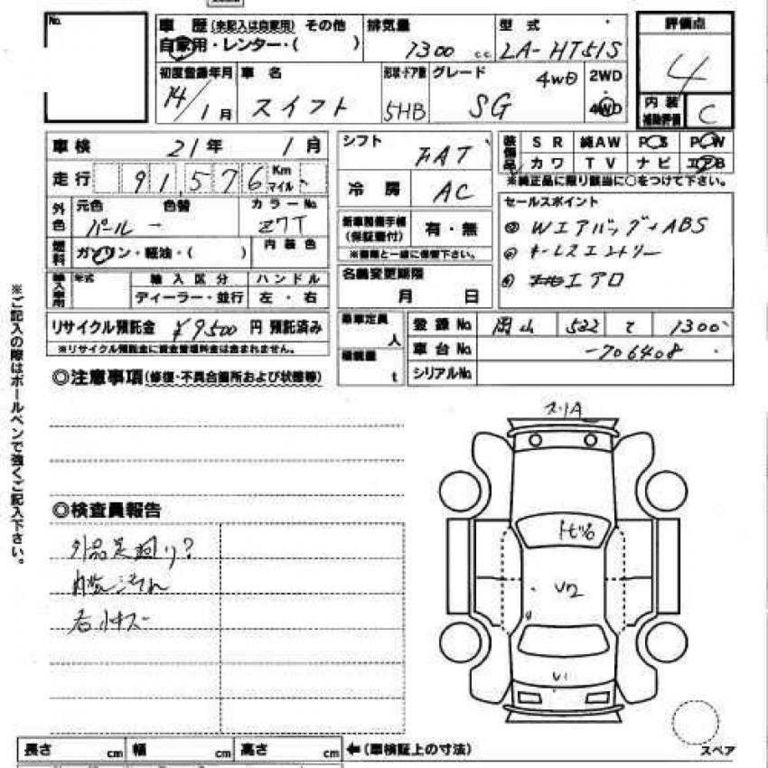 No.
車 歴 (未記入は自家用) その他
自家用・レンター・( )
排気量
1300 c.c.
型 式
LA-HT51S
評価点
4
初度登録年月
14/1月
車 名
スイフト
形状・ドア数
5HB
グレード
SG 4WD
2WD
4WD
内 装
補助評価
C
車 検 21年 1月
シフト
FAT
装備品
S R 純AW PS PW
カワ TV ナビ エアB
※純正品に限り該当に○をつけて下さい。
走行 91,576 Km
マイル
冷 房
AC
外色
元色 色替 カラーNo.
パール Z7T
燃料
ガソリン・軽油・( )
内 装 色
新車時備手帳
(保証書付)
有・無
※書類と一緒に保管下さい。
セールスポイント
① Wエアバッグ+ABS
② キーレスエントリー
③ エアロ
輸入車用
年式
輸 入 区 分
ハンドル
ディーラー・並行
左・右
名義変更期限
月 日
リサイクル預託金 ¥9500 円 預託済み
※リサイクル預託金に資金管理料金は含まれません。
乗車定員
人
積載量
t
登 録 No. 岡山 522 て 1300
車 台 No. -706408
シリアルNo.
◎注意事項(修復・不具合箇所および状態等)
◎検査員報告
内装汚れ
スリA
トビ石
U2
U1
スペア
長さ cm 幅 cm 高さ cm ←(車検証上の寸法)
※ご記入の際はボールペンで強くご記入下さい。